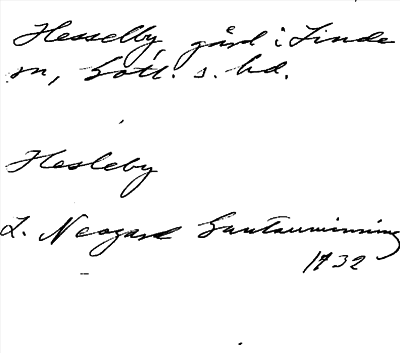 Hesselby, gård i Linde
sn, Gotl. s. hd.
Hesleby
L. Neogard Gautauminning
1732